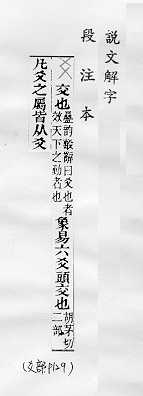 說文解字
段注本
爻 交也疊韵毄辭曰爻也者效天下之動者也象易六爻頭交也胡茅切二部
凡爻之屬皆从爻
(爻部P129)